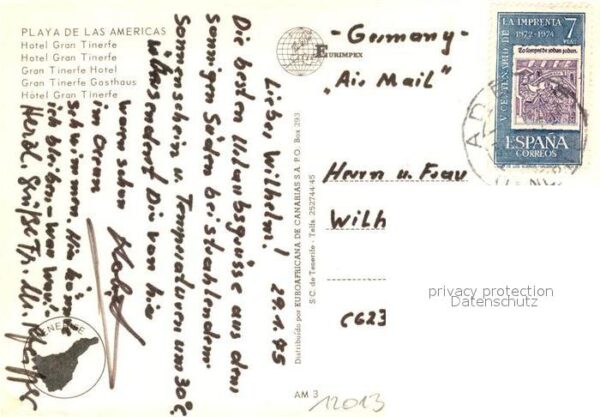 PLAYA DE LAS AMERICAS
Hotel Gran Tinerfe
Hotel Gran Tinerfe
Gran Tinerfe Hotel
Gran Tinerfe Gasthaus
Hôtel Gran Tinerfe
EURIMPEX
Lieber Wilhelm! 29.1.75
Die besten Urlaubsgrüsse aus dem
sonnigen Süden bei strahlendem
Sonnenschein u. Temperaturen um 30°C
Dir von hier
waren schon
im Ozean
schwimmen. Hier könnte
ich bleiben - war
Herzl. Grüße
TENERIFE
Distribuido por EUROAFRICANA DE CANARIAS S.A. P.O. Box 293
S/C. de Tenerife - Telfs. 252744/45
AM 3
- Germany -
"Air Mail"
Herrn u. Frau
Wilh
C623
12013
V CENTENARIO DE LA IMPRENTA
1972-1974
7
PTAS
ESPAÑA
CORREOS
privacy protection
Datenschutz